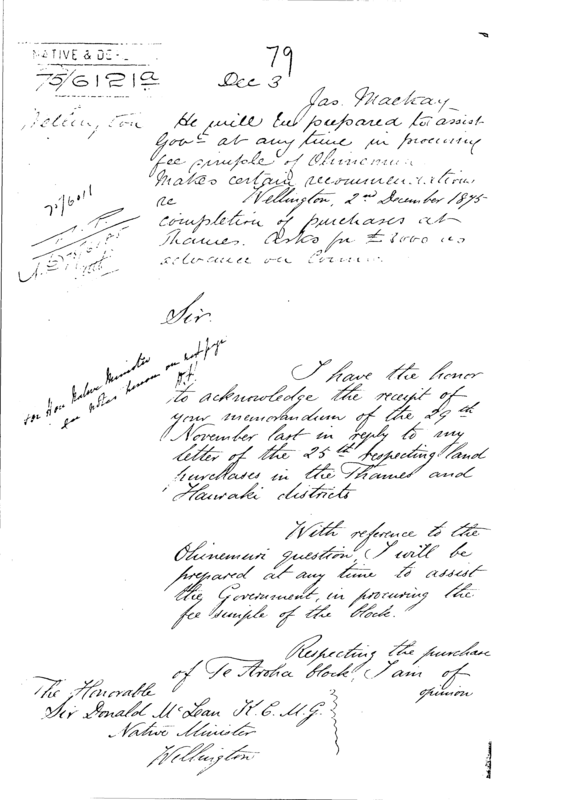 79
NATIVE & DE
75/6121a
Dec 3
Jas. Mackay
Wellington
He will be prepared to assist
Govt. at any time in procuring
fee simple of Ohinemuri
Makes certain recommendations
re Wellington, 2nd December 1875
completion of purchases at
Thames. Asks for £3000 as
advance on
75/6011
Sir.
For Hon Native Minister
see notes hereon on next page
I have the honor
to acknowledge the receipt of
your memorandum of the 29th
November last in reply to my
letter of the 25th respecting land
purchases in the Thames and
Hauraki districts
With reference to the
Ohinemuri question, I will be
prepared at any time to assist
the Government, in procuring the
fee simple of the block.
Respecting the purchase
of Te Aroha block, I am of
opinion
The Honorable
Sir Donald McLean K.C.M.G.
Native Minister
Wellington